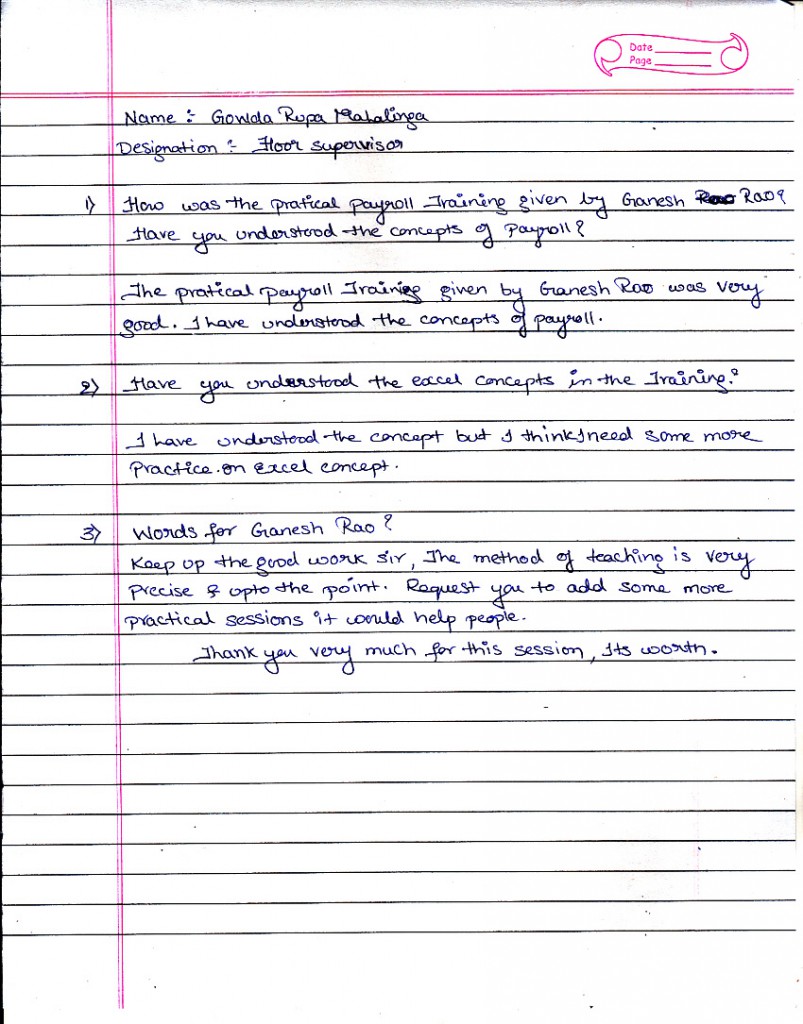 Date
Page
Name :- Gowda Rupa Mahalinga
Designation :- Floor supervisor
1) How was the pratical payroll Training given by Ganesh Rao Rao?
Have you understood the concepts of Payroll?
The pratical payroll Training given by Ganesh Rao was very
good. I have understood the concepts of payroll.
2) Have you understood the excel concepts in the Training?
I have understood the concept but I think I need some more
Practice on excel concept.
3) Words for Ganesh Rao?
Keep up the good work sir, The method of teaching is very
Precise & upto the point. Request you to add some more
practical sessions it would help people.
Thank you very much for this session, Its worth.